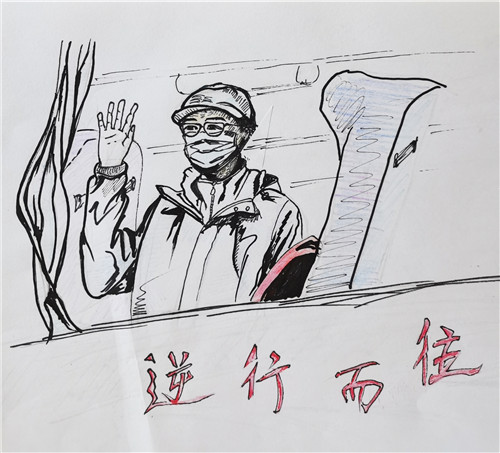 逆行而往